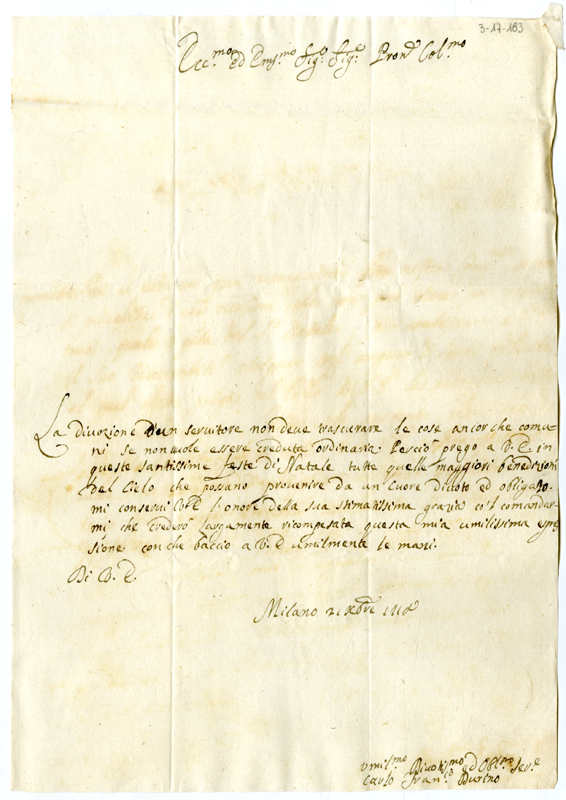 3-17-183
Ecc.mo ed Em.mo Sig.e Sig.e Pron.e Col.mo
La divozione d'un servitore non deve trascurare le cose ancor che comu
ni se non vuole essere creduta ordinaria. Perciò prego a V.E. in
queste santissime feste di Natale tutte quelle maggiori benedizioni
del Cielo che possano provenire da un Cuore divoto ed obligato.
mi conservi V.E. l'onore della sua stimatissima grazia co'l comandar
mi che crederò largamente ricompesata questa mia umilissima espres
sione. con che baccio a V.E. umilmente le mani.
Di V.E.
Milano 21 Xbre
Umil.mo Divotis.mo ed Obl.mo Ser.e
Carlo Fran.co Durino